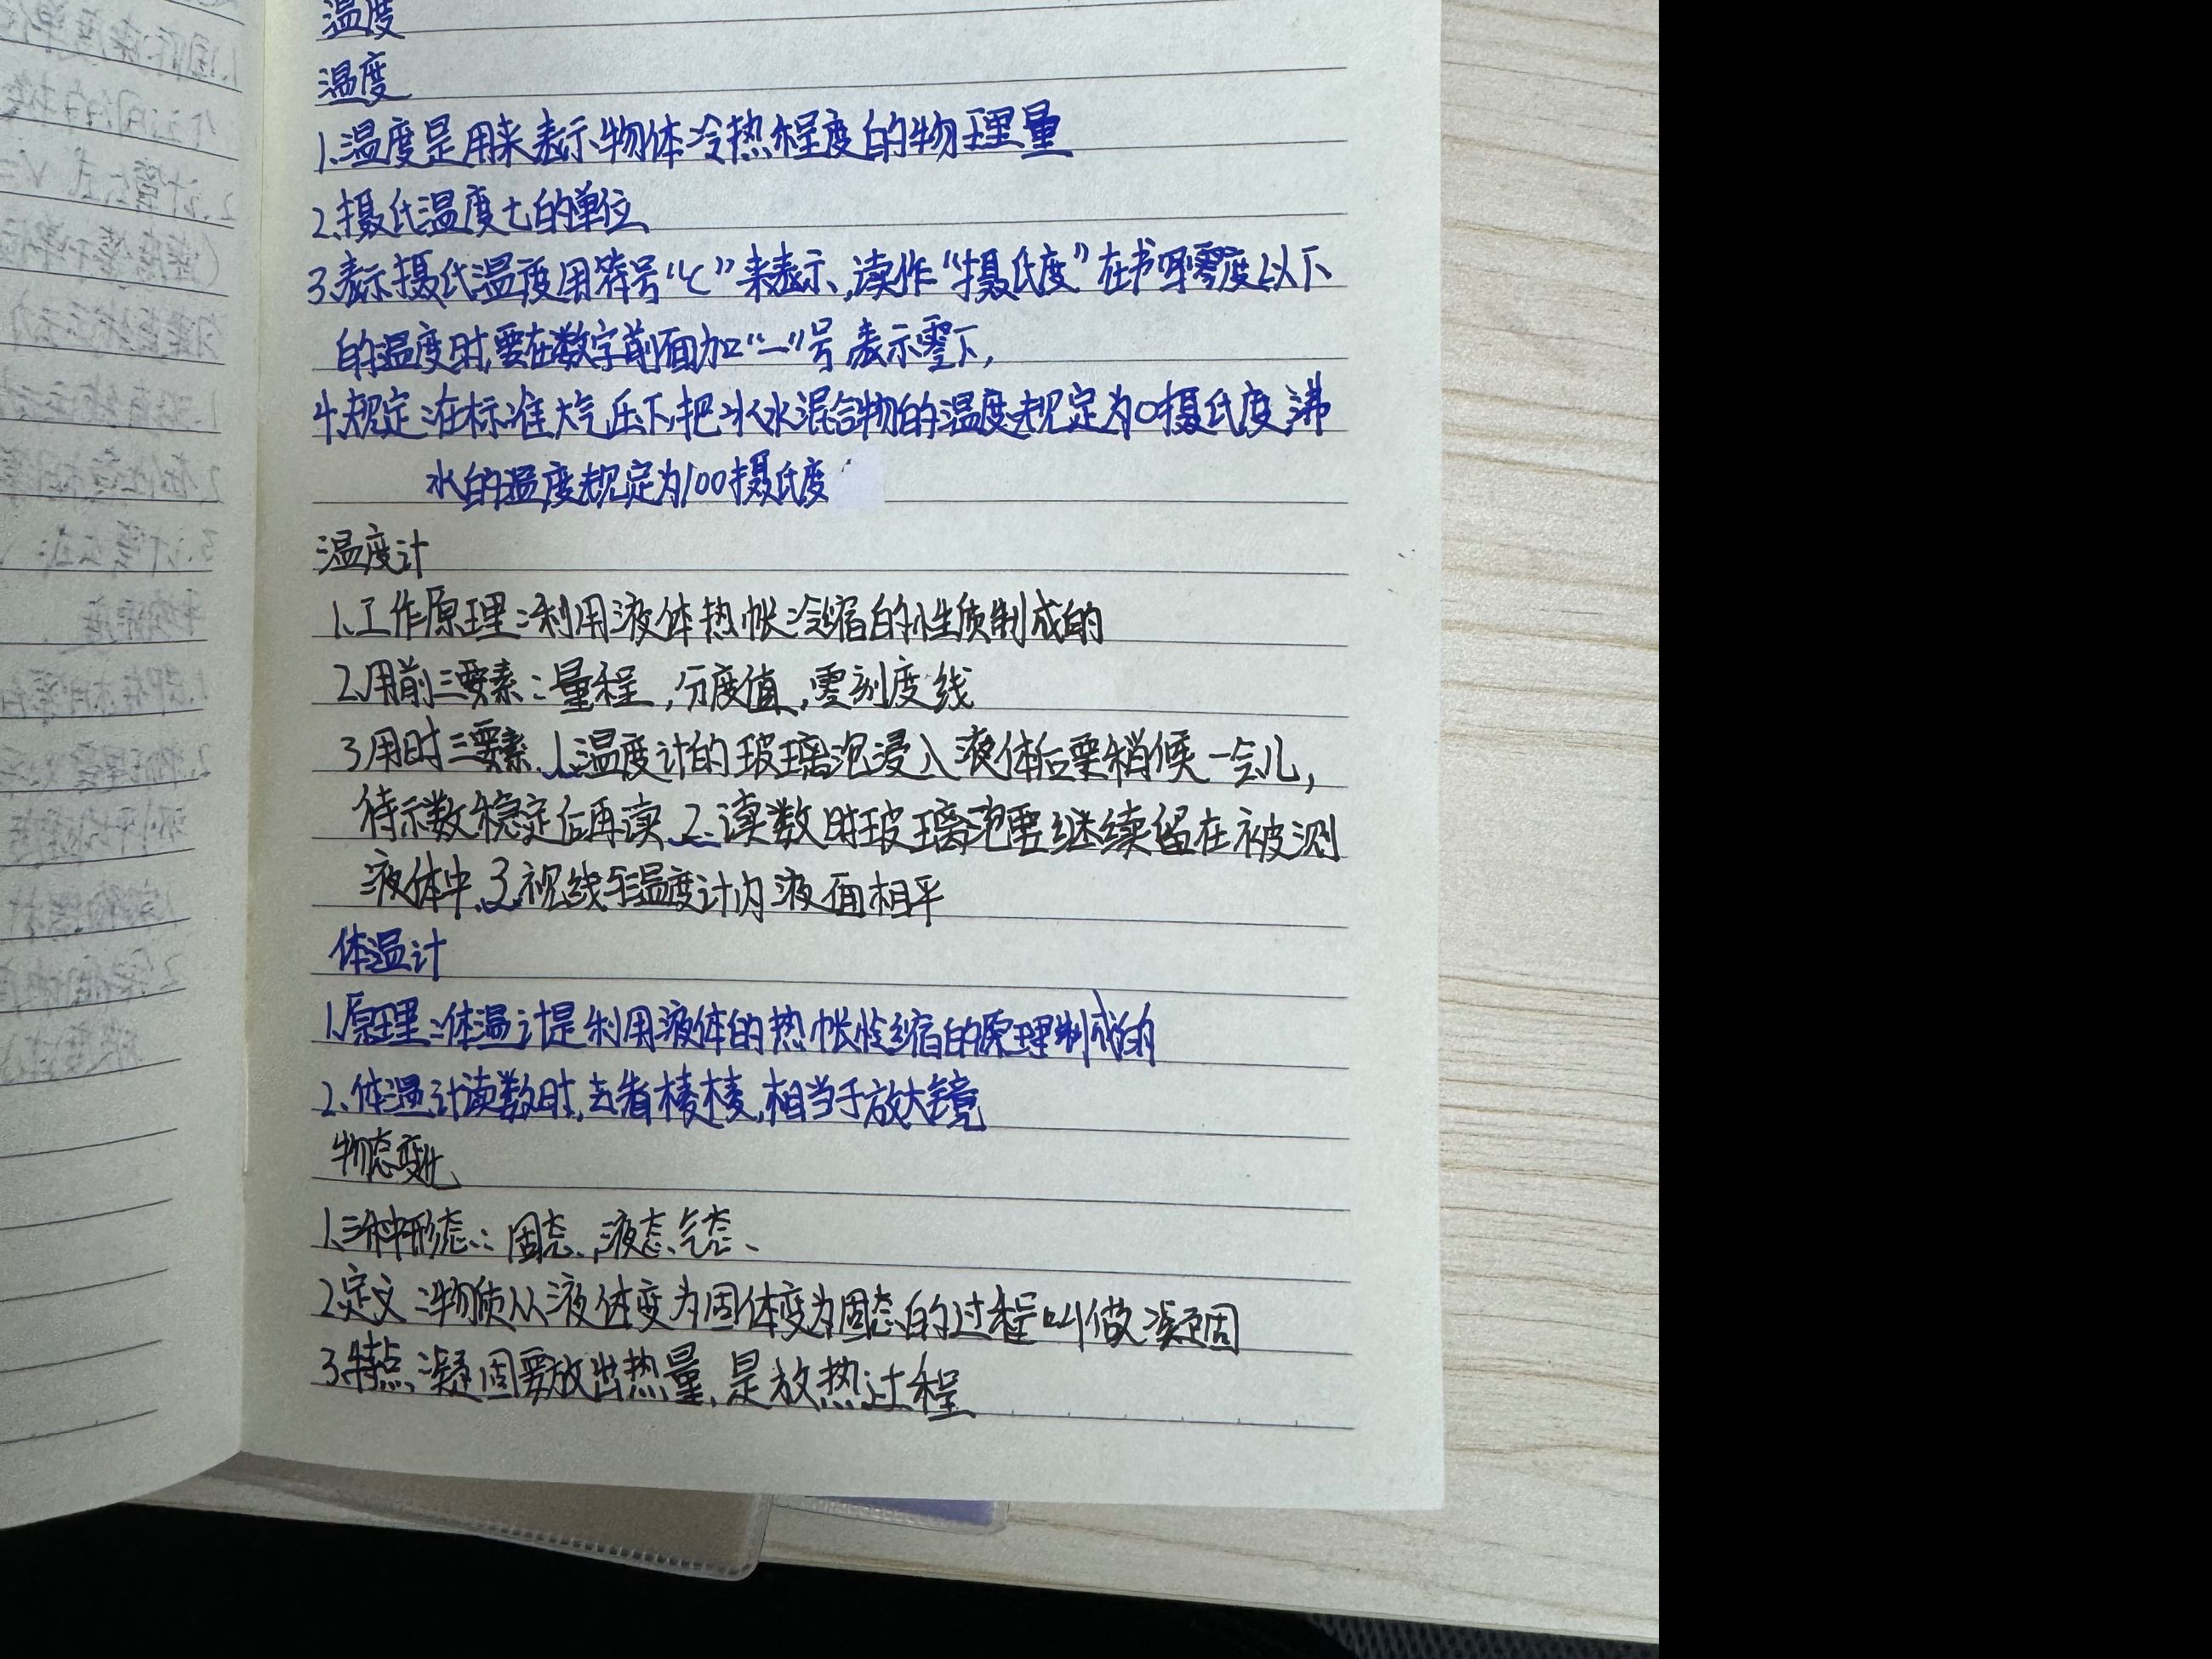 温度
温度
1.温度是用来表示物体冷热程度的物理量
2.摄氏温度t的单位
3.表示摄氏温度用符号“℃”来表示,读作“摄氏度”在书写零度以下
的温度时,要在数字前面加“—”号,表示零下,
4.规定:在标准大气压下,把冰水混合物的温度规定为0摄氏度,沸
水的温度规定为100摄氏度
温度计
1.工作原理:利用液体热帐冷缩的性质制成的
2.用前三要素:量程,分度值,零刻度线
3.用时三要素.1.温度计的玻璃泡浸入液体后要稍候一会儿,
待示数稳定后再读.2.读数时玻璃泡要继续留在被测
液体中.3.视线与温度计内液面相平
体温计
1.原理:体温计是利用液体的热帐冷缩的原理制成的
2.体温计读数时,去看棱棱,相当于放大镜
物态变化
1.三种形态:固态,液态、气态、
2.定义:物质从液体变为固体变为固态的过程叫做凝固
3.特点:凝固要放出热量,是放热过程